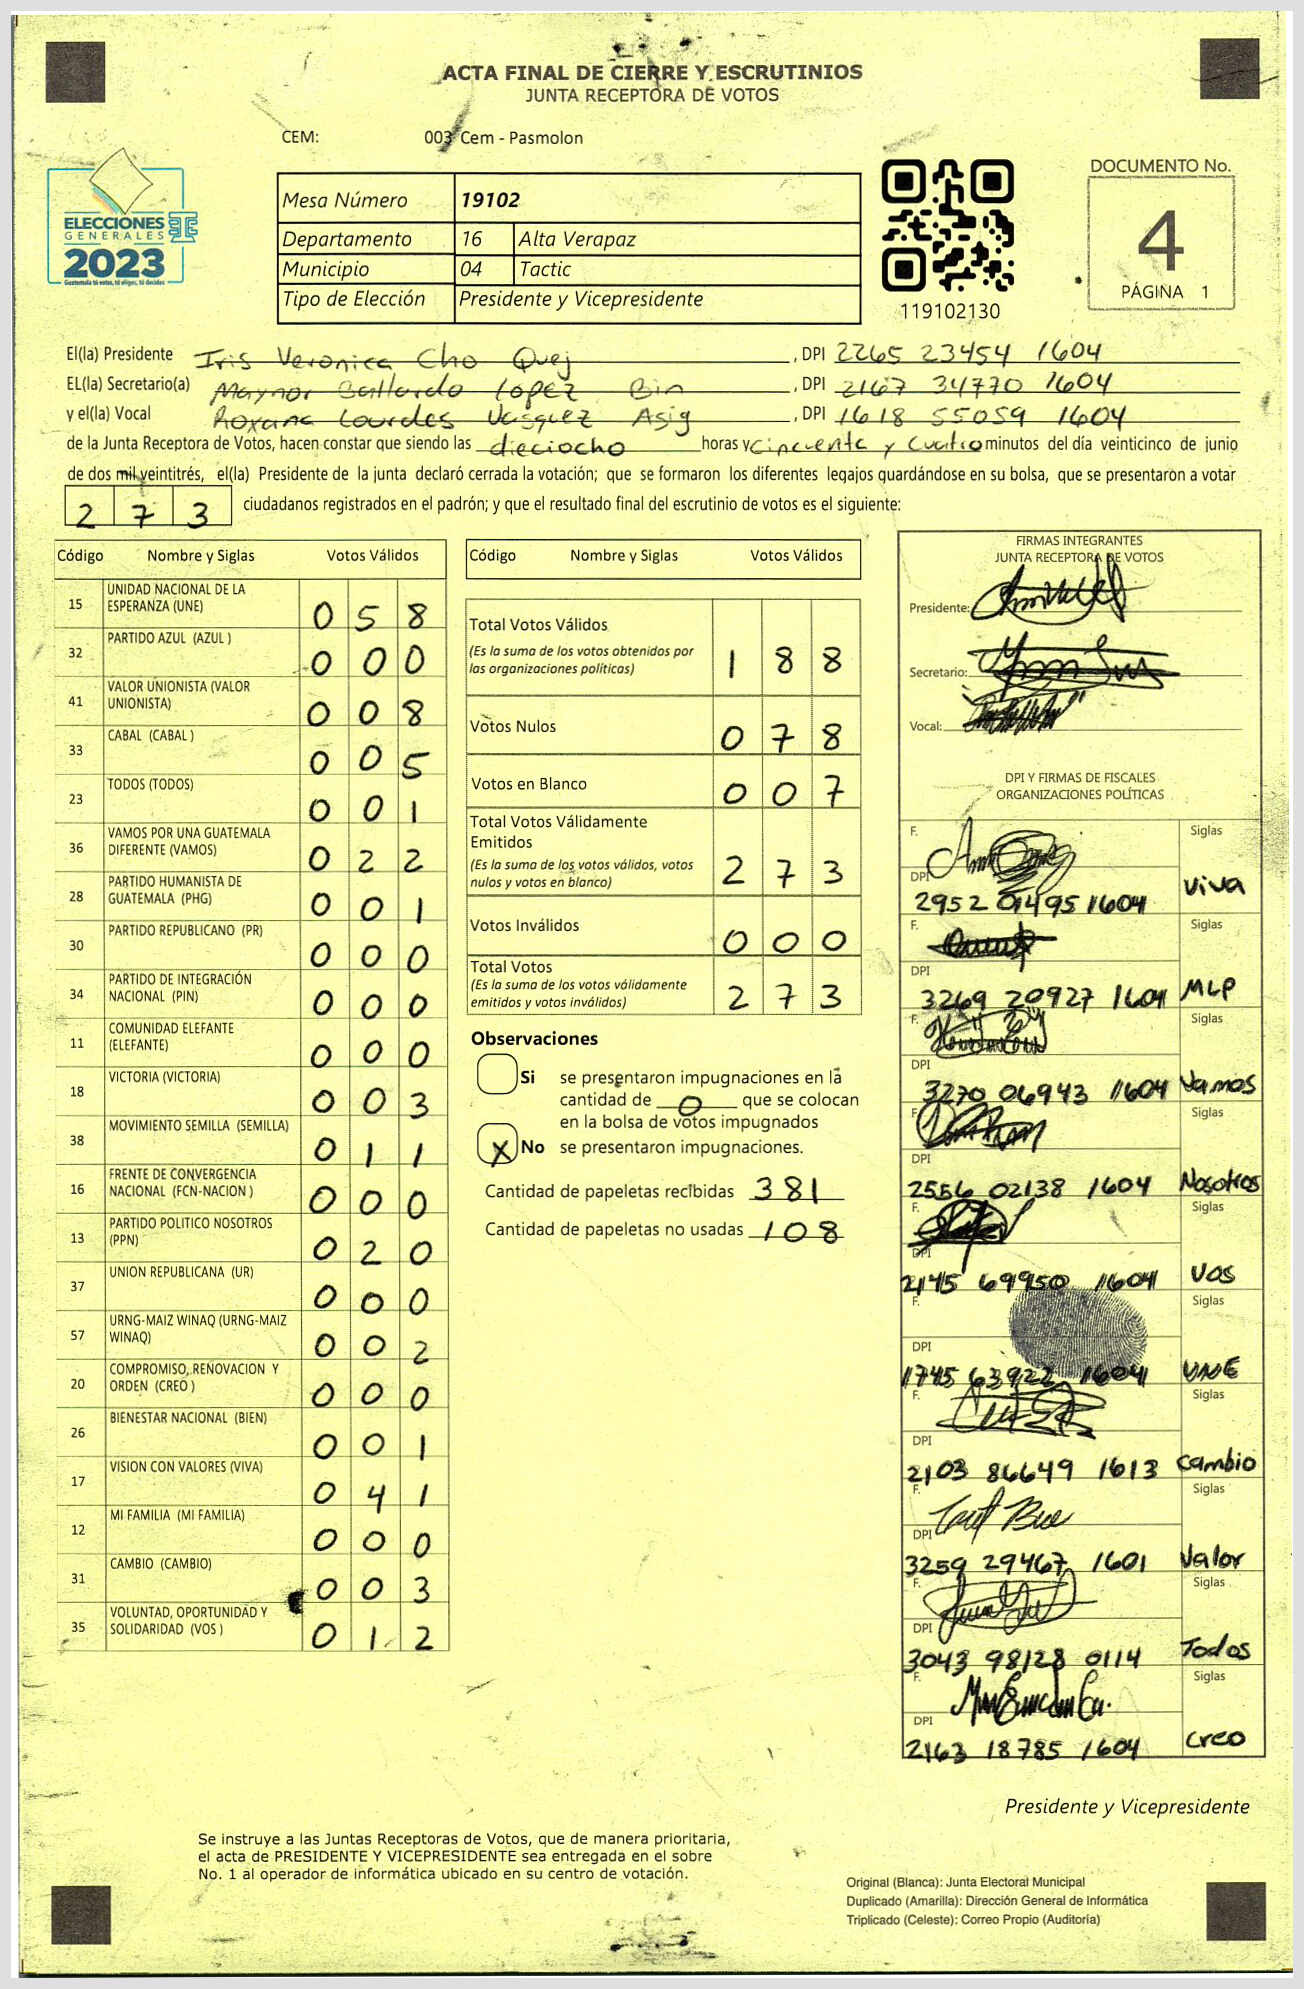 ACTA FINAL DE CIERRE Y ESCRUTINIOS
JUNTA RECEPTORA DE VOTOS
CEM: 003 Cem - Pasmolon
ELECCIONES
GENERALES
2023
Guatemala tú votas, tú eliges, tú decides
Mesa Número 19102
Departamento 16 Alta Verapaz
Municipio 04 Tactic
Tipo de Elección Presidente y Vicepresidente
119102130
DOCUMENTO No.
4
PÁGINA 1
El(la) Presidente Iris Veronica Cho Quej, DPI 2265 23454 1604
EL(la) Secretario(a) Maynor Lopez Bin, DPI 2167 34770 1604
y el(la) Vocal Roxana Lourdes Vasquez Asig, DPI 1618 55059 1604
de la Junta Receptora de Votos, hacen constar que siendo las dieciocho horas y cincuenta y cuatro minutos del día veinticinco de junio
de dos mil veintitrés, el(la) Presidente de la junta declaró cerrada la votación; que se formaron los diferentes legajos guardándose en su bolsa, que se presentaron a votar
2 7 3 ciudadanos registrados en el padrón; y que el resultado final del escrutinio de votos es el siguiente:
Código Nombre y Siglas Votos Válidos
15 UNIDAD NACIONAL DE LA
ESPERANZA (UNE) 0 5 8
32 PARTIDO AZUL (AZUL ) 0 0 0
41 VALOR UNIONISTA (VALOR
UNIONISTA) 0 0 8
33 CABAL (CABAL ) 0 0 5
23 TODOS (TODOS) 0 0 1
36 VAMOS POR UNA GUATEMALA
DIFERENTE (VAMOS) 0 2 2
28 PARTIDO HUMANISTA DE
GUATEMALA (PHG) 0 0 1
30 PARTIDO REPUBLICANO (PR) 0 0 0
34 PARTIDO DE INTEGRACIÓN
NACIONAL (PIN) 0 0 0
11 COMUNIDAD ELEFANTE
(ELEFANTE) 0 0 0
18 VICTORIA (VICTORIA) 0 0 3
38 MOVIMIENTO SEMILLA (SEMILLA) 0 1 1
16 FRENTE DE CONVERGENCIA
NACIONAL (FCN-NACION ) 0 0 0
13 PARTIDO POLITICO NOSOTROS
(PPN) 0 2 0
37 UNION REPUBLICANA (UR) 0 0 0
57 URNG-MAIZ WINAQ (URNG-MAIZ
WINAQ) 0 0 2
20 COMPROMISO, RENOVACION Y
ORDEN (CREO ) 0 0 0
26 BIENESTAR NACIONAL (BIEN) 0 0 1
17 VISION CON VALORES (VIVA) 0 4 1
12 MI FAMILIA (MI FAMILIA) 0 0 0
31 CAMBIO (CAMBIO) 0 0 3
35 VOLUNTAD, OPORTUNIDAD Y
SOLIDARIDAD (VOS ) 0 1 2
Código Nombre y Siglas Votos Válidos
Total Votos Válidos
(Es la suma de los votos obtenidos por
las organizaciones políticas) 1 8 8
Votos Nulos 0 7 8
Votos en Blanco 0 0 7
Total Votos Válidamente
Emitidos
(Es la suma de los votos válidos, votos
nulos y votos en blanco) 2 7 3
Votos Inválidos 0 0 0
Total Votos
(Es la suma de los votos válidamente
emitidos y votos inválidos) 2 7 3
Observaciones
Si se presentaron impugnaciones en la
cantidad de 0 que se colocan
en la bolsa de votos impugnados
X No se presentaron impugnaciones.
Cantidad de papeletas recibidas 381
Cantidad de papeletas no usadas 108
FIRMAS INTEGRANTES
JUNTA RECEPTORA DE VOTOS
Presidente:
Secretario:
Vocal:
DPI Y FIRMAS DE FISCALES
ORGANIZACIONES POLÍTICAS
F. Siglas
DPI 2952 01495 1604 Viva
F. Siglas
DPI 3269 20927 1604 MLP
F. Siglas
DPI 3270 06943 1604 Vamos
F. Siglas
DPI 2556 02138 1604 Nosotros
F. Siglas
DPI 2145 69950 1604 VOS
F. Siglas
DPI 1745 63922 1604 UNE
F. Siglas
DPI 2103 86649 1613 Cambio
F. Siglas
DPI 3259 29467 1601 Valor
F. Siglas
DPI 3043 98128 0114 Todos
F. Siglas
DPI 2163 18785 1604 Creo
Presidente y Vicepresidente
Se instruye a las Juntas Receptoras de Votos, que de manera prioritaria,
el acta de PRESIDENTE Y VICEPRESIDENTE sea entregada en el sobre
No. 1 al operador de informática ubicado en su centro de votación.
Original (Blanca): Junta Electoral Municipal
Duplicado (Amarilla): Dirección General de Informática
Triplicado (Celeste): Correo Propio (Auditoría)